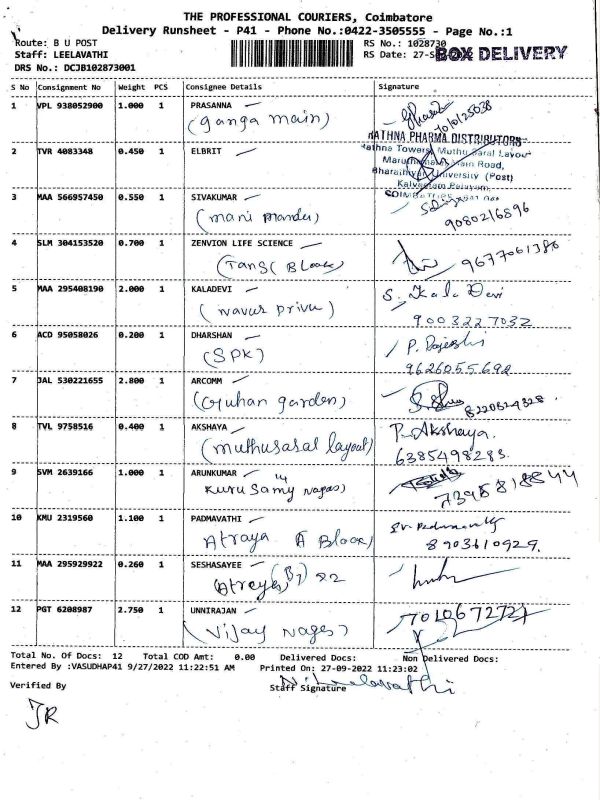 THE PROFESSIONAL COURIERS, Coimbatore
Delivery Runsheet - P41 - Phone No.:0422-3505555 - Page No.:1
Route: B U POST RS No.: 1028730
Staff: LEELAVATHI RS Date: 27-S BOX DELIVERY
DRS No.: DCJB102873001
S No Consignment No Weight PCS Consignee Details Signature
1 VPL 938052900 1.000 1 PRASANNA
(ganga main)
RATHNA PHARMA DISTRIBUTORS
2 TVR 4083348 0.450 1 ELBRIT
Rathna Towers, Muthusaral Layout
Main Road,
Bharathiyar University (Post)
Kalveeram Palayam,
3 MAA 566957450 0.550 1 SIVAKUMAR
(mani
9080216896
4 SLM 304153520 0.700 1 ZENVION LIFE SCIENCE
(Tansi Block) 9677061386
5 MAA 295408190 2.000 1 KALADEVI S. Kala Devi
9003227032
6 ACD 95058026 0.200 1 DHARSHAN P. Rajeshi
(SPK) 9626055692
7 JAL 530221655 2.800 1 ARCOMM
(Guhan garden) 8220524328
8 TVL 9758516 0.400 1 AKSHAYA P. Akshaya.
(muthusaral layout) 6385498283
9 SVM 2639166 1.000 1 ARUNKUMAR
Kurusamy nagar)
10 KMU 2319560 1.100 1 PADMAVATHI
Atraya A Block) 8903610929.
11 MAA 295929922 0.260 1 SESHASAYEE
Atreya
12 PGT 6208987 2.750 1 UNNIRAJAN
(Vijay nagar)
Total No. Of Docs: 12 Total COD Amt: 0.00 Delivered Docs: Non Delivered Docs:
Entered By :VASUDHAP41 9/27/2022 11:22:51 AM Printed On: 27-09-2022 11:23:02
Verified By Staff Signature
JR